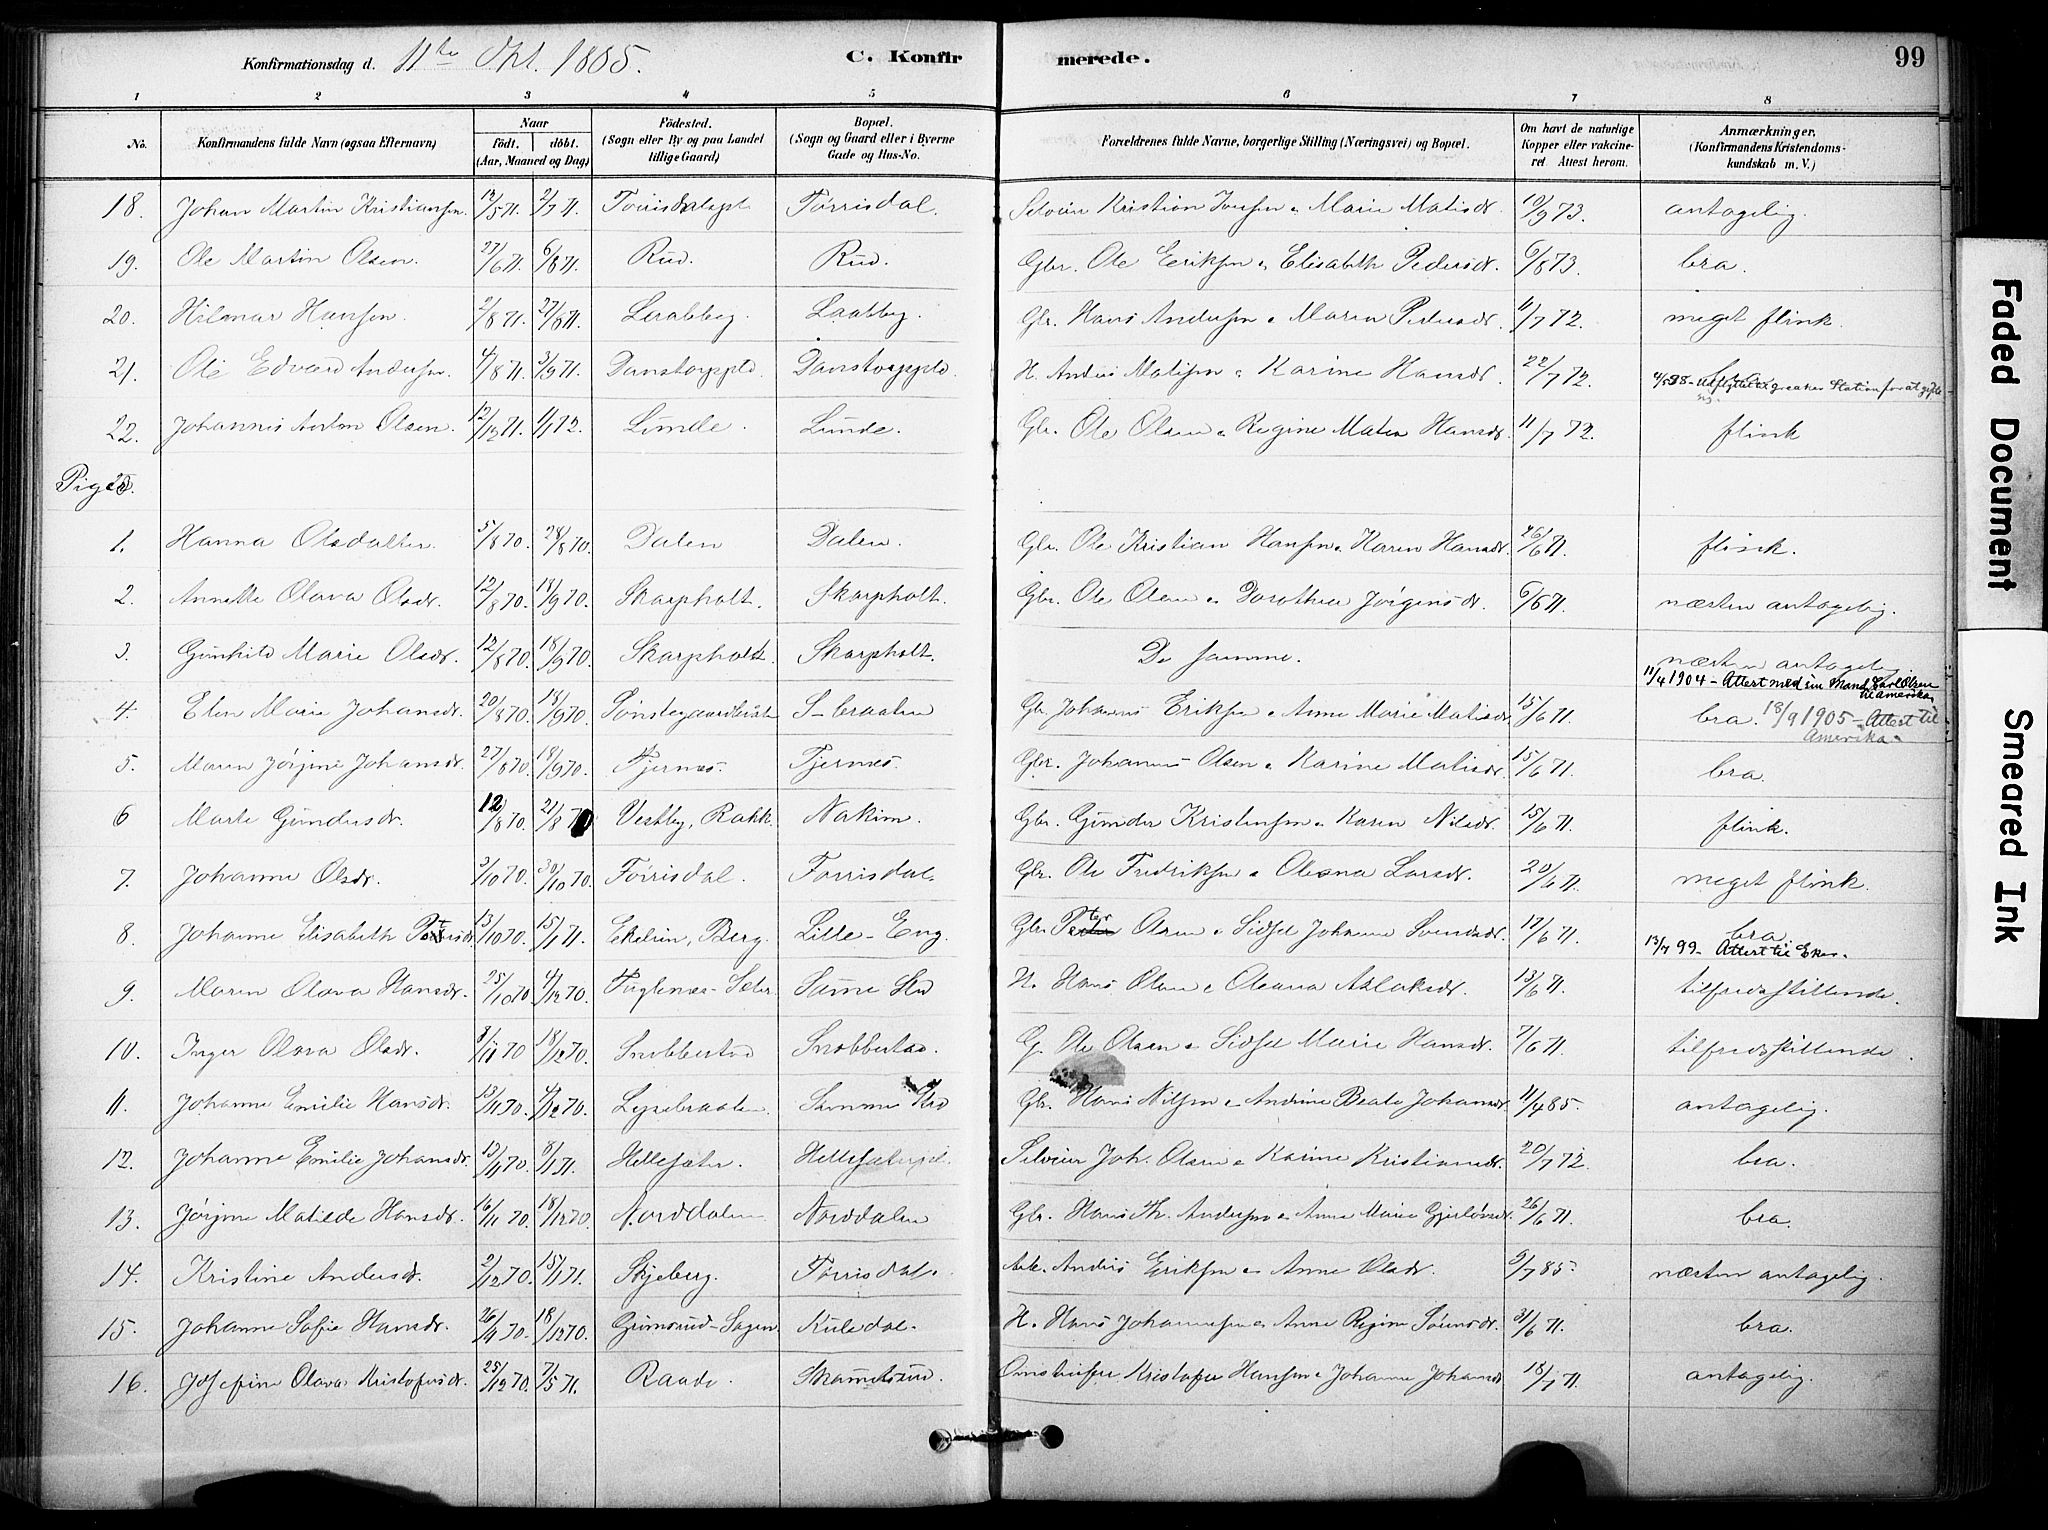 Konfirmationsdag d. 11te Okt. 1885. C. Konfirmerede. 99
1 2 3 4 5 6 7 8
No. Konfirmandens fulde Navn (ogsaa Efternavn) Naar födt. döbt. (Aar, Maaned og Dag) Födested. (Sogn eller By og paa Landet tillige Gaard) Bopæl. (Sogn og Gaard eller i Byerne Gade og Hus-No. Forældrenes fulde Navne, borgerlige Stilling (Næringsvei) og Bopæl. Om havt de naturlige Kopper eller vaccineret Attest herom. Anmærkninger. (Konfirmandens Kristendomskundskab m. V.)
18. Johan Martin Kristiansen 12/5 71. 2/7 71. Torrisdalspl Torrisdal. Selveier Kristian & Marie Matisdr. 10/9 73. antagelig.
19. Ole Martin Olsen. 27/6 71. 6/8 71. Rud. Rud. Gbr. Ole Eriksen & Elisabeth Pedersdr. 6/8 73. bra.
20. Hilmar Hansen. 2/8 71. 27/8 71. Laabbg. Laabbg. Gbr. Hans Andersen & Maren Pedersdr. 11/7 72. meget flink.
21. Ole Edvard Andersen 4/8 71. 3/9 71. Danstorppld Danstorppld. H. Anders Matisen & Karine Hansdr. 22/7 72. Station for at gifte sig.
22. Johannes Anton Olsen. 12/12 71. 1/1 72. Lunde. Lunde. Gbr. Ole Olsen & Regine Matea Hansdr. 11/7 72. flink
Piger.
1. Hanna Olsdatter 5/8 70. 28/8 70. Dalen Dalen. Gbr. Ole Kristian Hansen & Karen Hansdr. 26/6 71. flink.
2. Annette Olava Olsdr. 12/8 70. 18/9 70. Skarpholt. Skarpholt. Gbr. Ole Olsen & Dorothea Jørgensdr. 6/6 71. næsten antagelig.
3. Gunhild Marie Olsdr. 12/8 70. 18/9 70. Skarpholt. Skarpholt. De samme. næsten antagelig
11/4 1904 - Attest med sin Mand Karl Olsen til Amerika.
4. Elen Marie Johansdr. 20/8 70. 18/9 70. S-braaten Gbr. Johannes Eriksen & Anne Marie Matisdr. 15/6 71. bra. 18/9 1905 - Attest til Amerika.
5. Maren Jørgine Johansdr. 27/8 70. 18/9 70. Tjernes. Tjernes. Gbr. Johannes Olsen & Karine Matisdr. 15/6 71. bra.
6 Marte Gundersdr. 12/8 70. 21/8 70 Vestby, Rakk. Nakim. Gbr. Gunder Kristensen & Karen Nilsdr. 15/6 71. flink.
7. Johanne Olsdr. 3/10 70. 30/10 70. Torrisdal. Torrisdal. Gbr. Ole Fredriksen & Oleana Larsdr. 20/6 71. meget flink.
8. Johanne Elisabeth Petersdr. 13/10 70. 15/1 71. Ekelien, Berg. Lille-Eng. Gbr. Peter Olsen & Sidsel Johanne Svendsdr. 17/6 71. bra
13/7 99 - Attest til
9. Maren Olava Hansdr. 25/10 70 4/12 70. Fuglenæs-Seter. Samme Sted H. Hans Olsen & Oleana Aslaksdr. 13/6 71. tilfredsstillende.
10. Inger Olava Olsdr. 8/11 70 18/12 70. Snobbestad Snobbestad. G. Ole Olsen & Sidsel Marie Hansdr. 7/6 71. tilfredsstillende.
11. Johanne Emilie Hansdr. 13/11 70. 4/12 70. Lysebraaten. Samme Sted Gbr. Hans Nilsen & Andrine Beate Johansdr. 11/4 85. antagelig.
12. Johanne Emilie Johansdr. 13/11 70. 8/1 71. Hellesæter. Hellesæterpl. Selveier Joh. Olsen & Karine Kristiansdr. 20/7 72. bra.
13. Jørgine Matilde Hansdr. 16/11 70. 18/12 70. Norddalen Norddalen Gbr. Hans Th. Andersen & Anne Marie 26/6 71. bra.
14. Kristine Andersdr. 2/12 70. 15/1 71. Skjeberg. Torrisdal. Arb. Anders Eriksen & Anne Olsdr. 9/7 85. næsten antagelig.
15. Johanne Sofie Hansdr. 26/11 70. 18/12 70. Grimsrud-Sagen. Kulsdal. H. Hans Johannesen & Anne Regine Sörensdr. 31/6 71. bra.
16. Josefine Olava Kristofersdr. 25/12 70. 7/5 71. Raade. Skammesrud. Kristofer Hansen & Johanne Johansdr 18/7 71. antagelig.
Faded Document
Smeared Ink